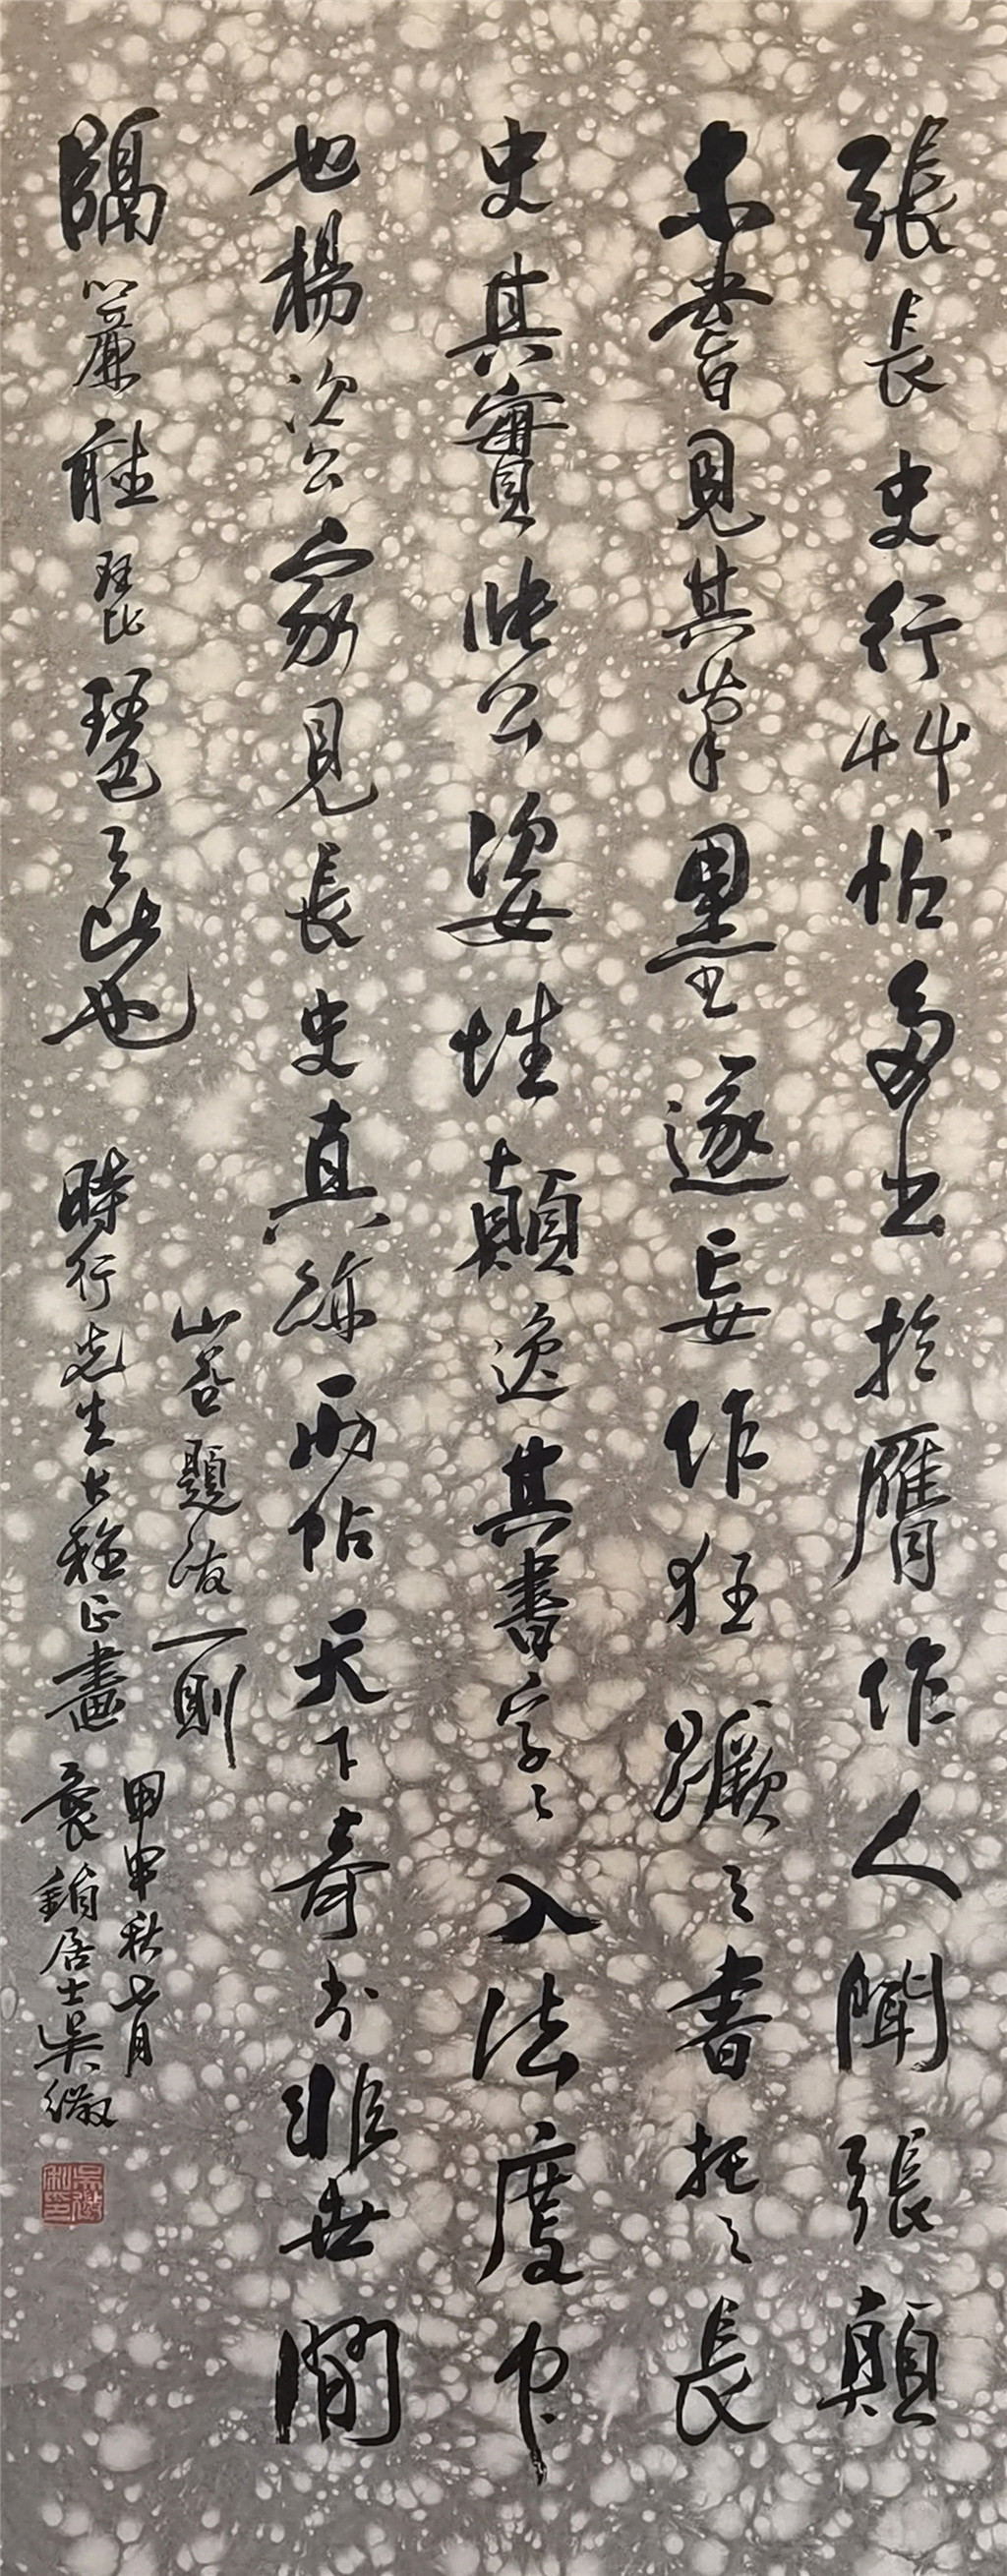 張長史行艸帖多出於贗作人聞張顛
未嘗見其筆墨也遂妄作狂蹶之書托之長
史其實張公姿性顛逸其書字々入法度中
也楊次公家見長史真跡兩帖天下奇书非世間
隔簾聽琵琶之比也
山谷題跋一則
時行先生大雅正畫
甲申秋七月
袌鋗居士吳徵
吳徵私印